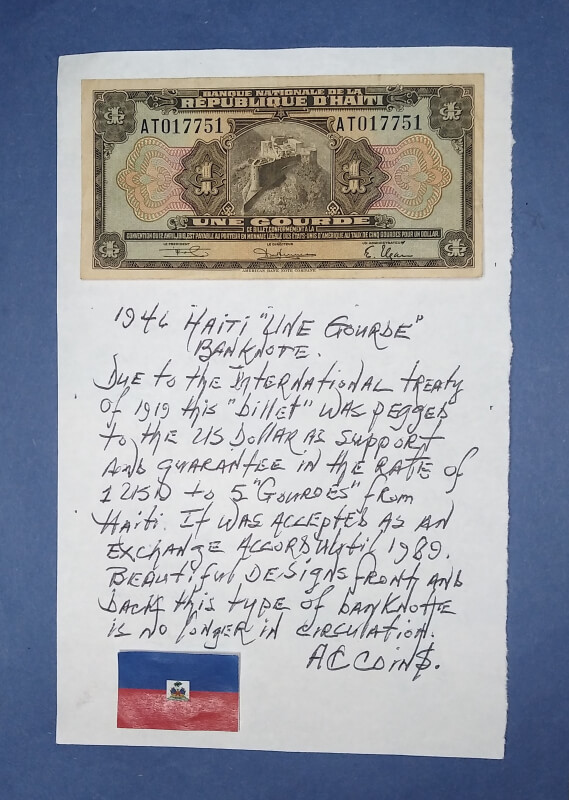 BANQUE NATIONALE DE LA
RÉPUBLIQUE D'HAÏTI
AT017751 AT017751
1 1
UNE GOURDE
CE BILLET, CONFORMÉMENT À LA
CONVENTION DU 12 AVRIL 1919, EST PAYABLE AU PORTEUR EN MONNAIE LÉGALE DES ÉTATS-UNIS D'AMÉRIQUE AU TAUX DE CINQ GOURDES POUR UN DOLLAR.
LE PRÉSIDENT LE DIRECTEUR
AMERICAN BANK NOTE COMPANY.
1946 HAITI "UNE GOURDE"
BANKNOTE.
DUE TO THE INTERNATIONAL TREATY
OF 1919 THIS "BILLET" WAS PEGGED
TO THE US DOLLAR AS SUPPORT
AND GUARANTEE IN THE RATE OF
1 USD TO 5 "GOURDES" FROM
HAITI. IT WAS ACCEPTED AS AN
EXCHANGE ACCORD UNTIL 1989.
BEAUTIFUL DESIGNS FRONT AND
BACK THIS TYPE OF BANKNOTTE
IS NO LONGER IN CIRCULATION.
AC COIN$.